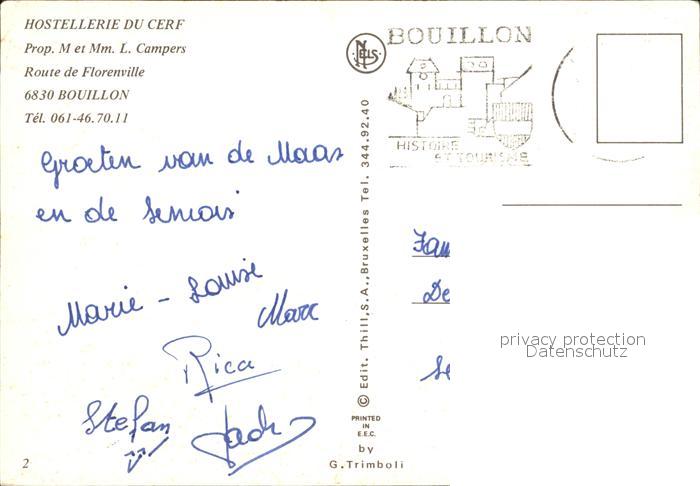 HOSTELLERIE DU CERF
Prop. M et Mm. L. Campers
Route de Florenville
6830 BOUILLON
Tél. 061-46.70.11
Groeten van de Maas
en de Semois
Marie - Louise
Marc
Rica
Stefan
2
NELS
BOUILLON
HISTOIRE
ET TOURISME
© Edit. Thill,S.A.,Bruxelles Tel. 344.92.40
PRINTED
IN
E.E.C.
by
G.Trimboli
De
Se
privacy protection
Datenschutz